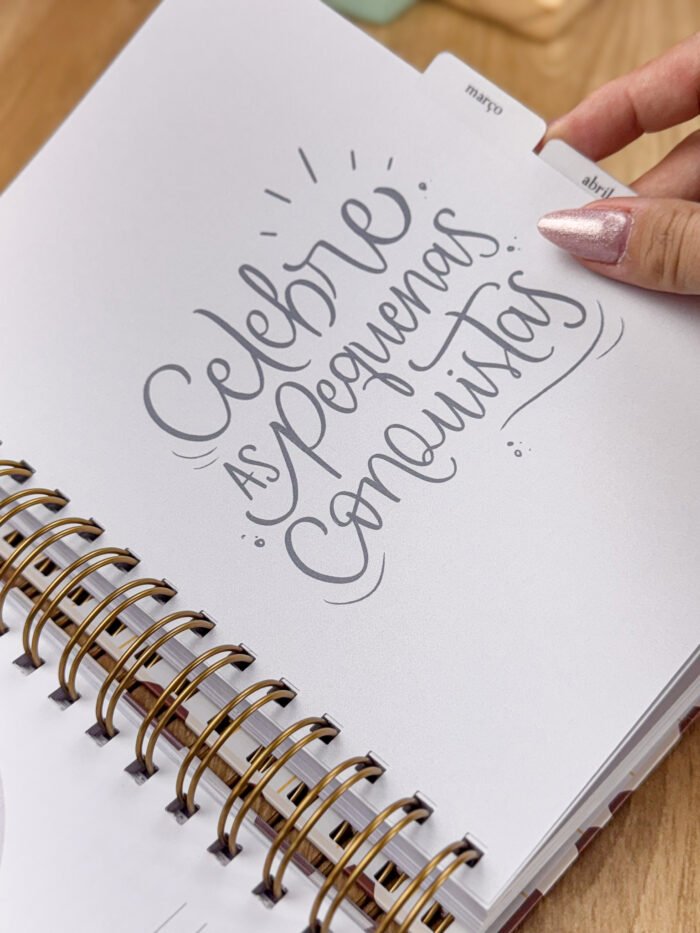 março
abril
Celebre
AS Pequenas
Conquistas